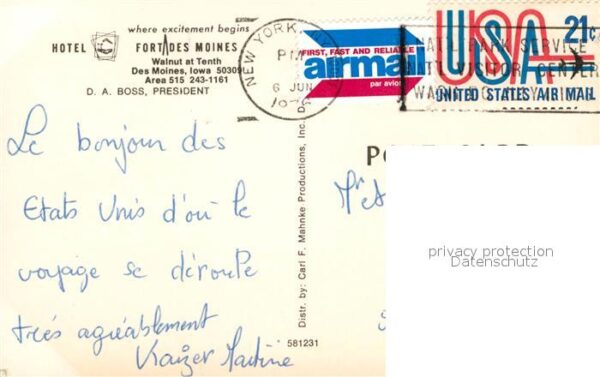 where excitement begins
HOTEL FORT DES MOINES
Walnut at Tenth
Des Moines, Iowa 50309
Area 515 243-1161
D. A. BOSS, PRESIDENT
NEW YORK,
PM
6 JUN
FIRST, FAST AND RELIABLE
airmail
par avion
USA 21c
UNITED STATES AIR MAIL
NAT'L PARK SERVICE
NAT'L VISITOR CENTER
Le bonjour des
Etats Unis d'où le
voyage se déroule
très agréablement
Kaizer Martine
Distr. by: Carl F. Mahnke Productions, Inc.
581231
POST CARD
privacy protection
Datenschutz